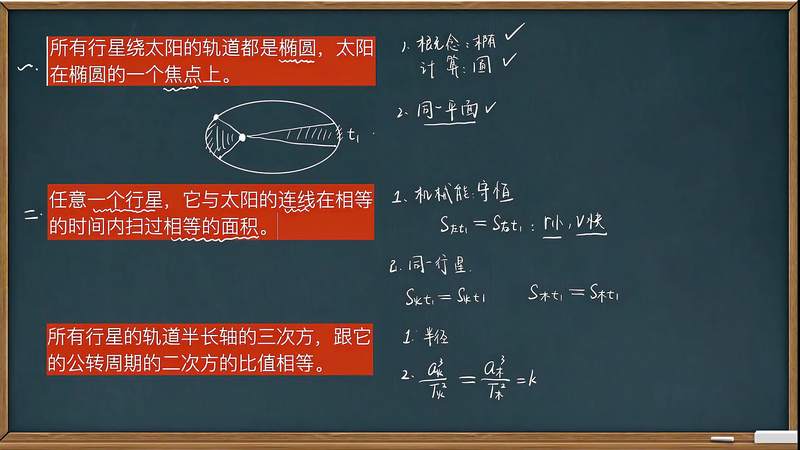 一.
所有行星绕太阳的轨道都是椭圆，太阳
在椭圆的一个焦点上。
1. 概念:椭 ✓
计算:圆 ✓
2. 同一平面 ✓
t₁
二.
任意一个行星，它与太阳的连线在相等
的时间内扫过相等的面积。
1. 机械能:守恒
S左t₁=S右t₁: r小, v快
2. 同一行星.
S火t₁=S火t₁ S木t₁=S木t₁
所有行星的轨道半长轴的三次方，跟它
的公转周期的二次方的比值相等。
1. 半径
2. a火³/T火²=a木³/T木²=k